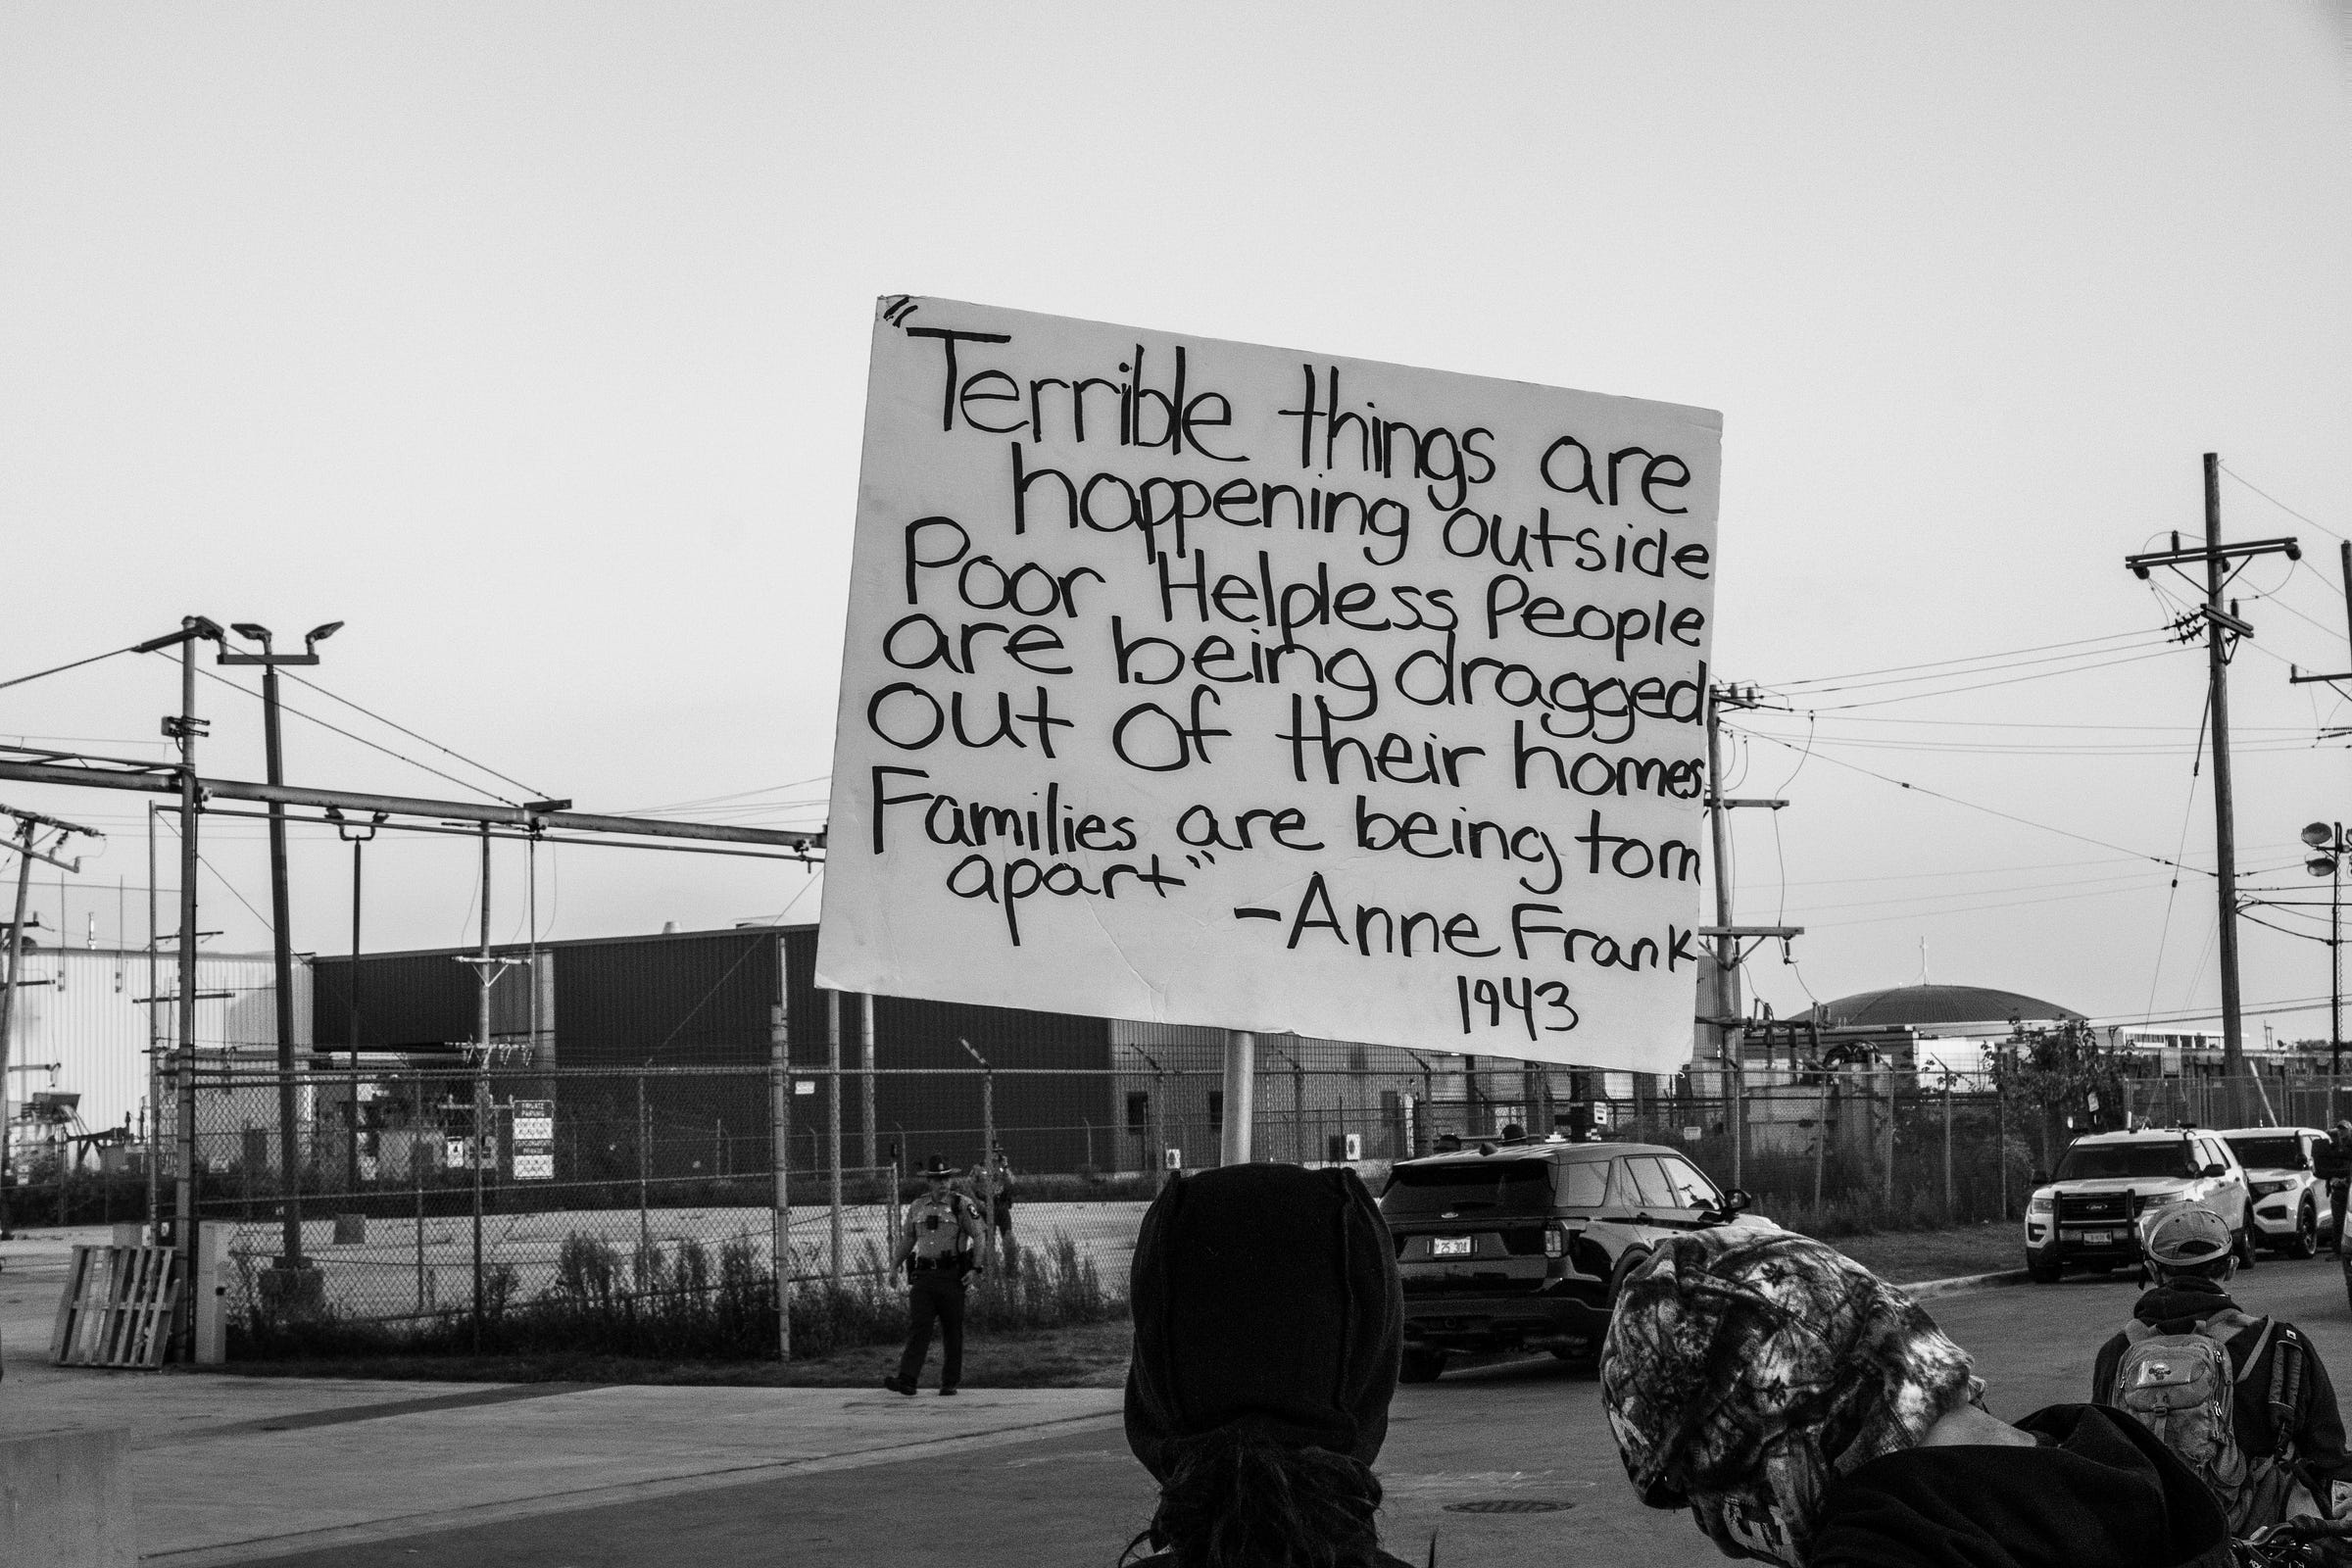 "Terrible things are
happening outside
Poor Helpless People
are being dragged
out of their homes
Families are being torn
apart"
-Anne Frank
1943